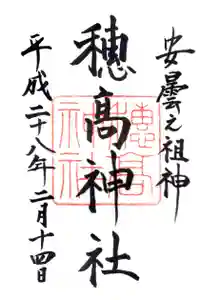 安曇之祖神
穂高神社
穂高神社
平成二十八年二月十四日